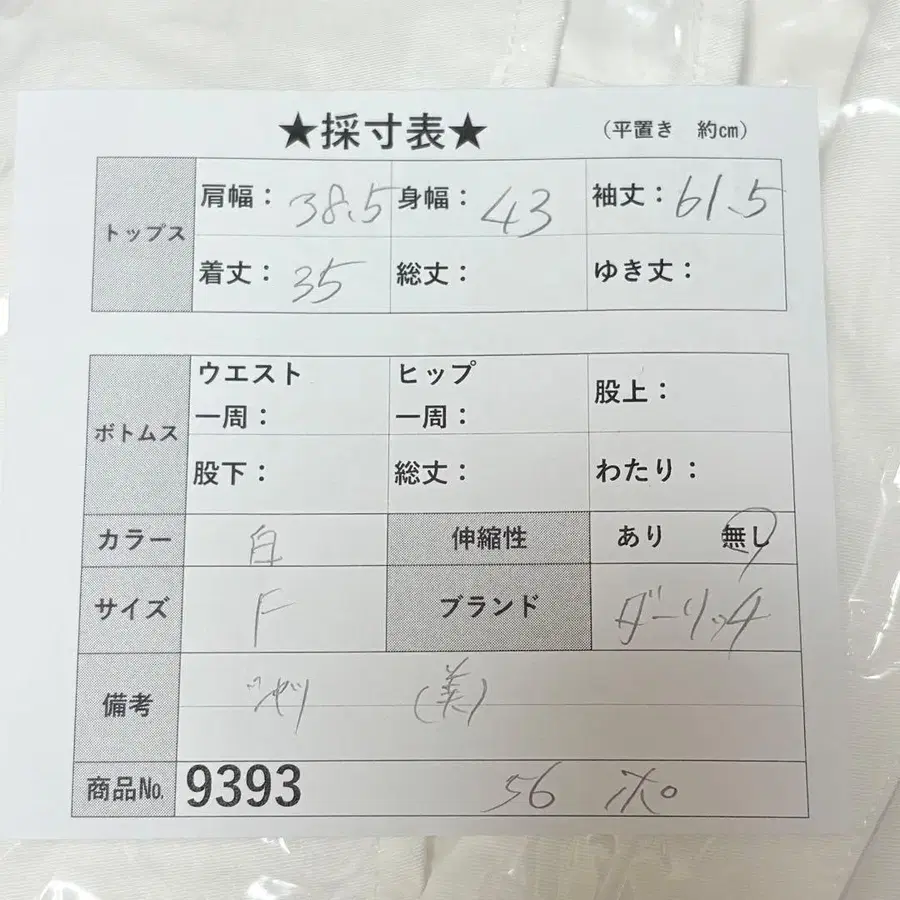 ★採寸表★ (平置き 約cm)
トップス 肩幅: 38.5 身幅: 43 袖丈: 61.5
着丈: 35 総丈: ゆき丈:
ボトムス ウエスト一周: ヒップ一周: 股上:
股下: 総丈: わたり:
カラー 白 伸縮性 あり 無し
サイズ F ブランド ダーリッチ
備考 (美)
商品No. 9393 56